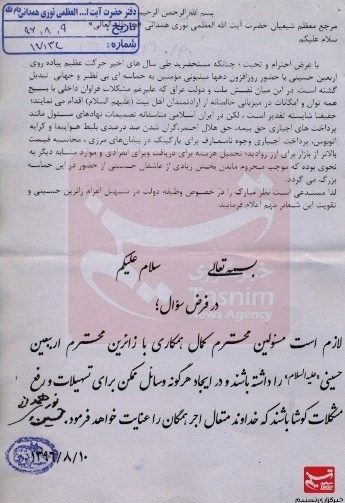 بسم الله الرحمن الرحیم
دفتر حضرت آیت ا... العظمی نوری همدانی
تاریخ: ۹۶،۸،۹
شماره:
مرجع معظم شیعیان حضرت آیت الله العظمی نوری همدانی
سلام علیکم
با عرض احترام و تحیت؛ چنانکه مستحضرید طی سال های اخیر حرکت عظیم پیاده روی
اربعین حسینی با حضور روزافزون دهها میلیونی مؤمنین به حماسه ای بی نظیر و جهانی تبدیل
شده است. در این میان نقش ملت و دولت عراق که علیرغم مشکلات فراوان داخلی با بسیج
همه توان و امکانات در میزبانی خالصانه از ارادتمندان اهل بیت (علیهم السلام) اقدام می نمایند؛
حقیقتا شایسته تقدیر است. لکن در ایران اسلامی متأسفانه تصمیمات نهادهای مسئول مانند
پرداخت های اجباری حق بیمه، حق هلال احمر، گران شدن صد درصدی بلیط هواپیما و کرایه
اتوبوس، پرداخت اجباری وجوه نامتعارف برای پارکینگ در پایان های مرزی، محاسبه قیمت
بالاتر از بازار برای ارز روادید؛ تحمیل هزینه برای دریافت ویزای انفرادی و موارد مشابه دیگر به
نحوی بوده که موجب محروم ماندن بخش زیادی از عاشقان حسینی از حضور در این حماسه
بزرگ می گردد.
لذا مستدعی است نظر مبارک را در خصوص وظیفه دولت در تسهیل اعزام زائرین حسینی و
تقویت این شعائر مهم اعلام فرمایید
بسمه تعالی
سلام علیکم
در فرض سؤال؛
لازم است مسئولین محترم کمال همکاری با زائرین محترم اربعین
حسینی «علیه السلام» را داشته باشند و در ایجاد هرگونه وسائل ممکن برای تسهیلات و رفع
مشکلات کوشا باشند که خداوند متعال اجر همگان را عنایت خواهد فرمود.
حسین نوری همدانی
۱۳۹۶/۸/۱۰
خبرگزاری تسنیم
Tasnim
News Agency
خبرگزاری تسنیم